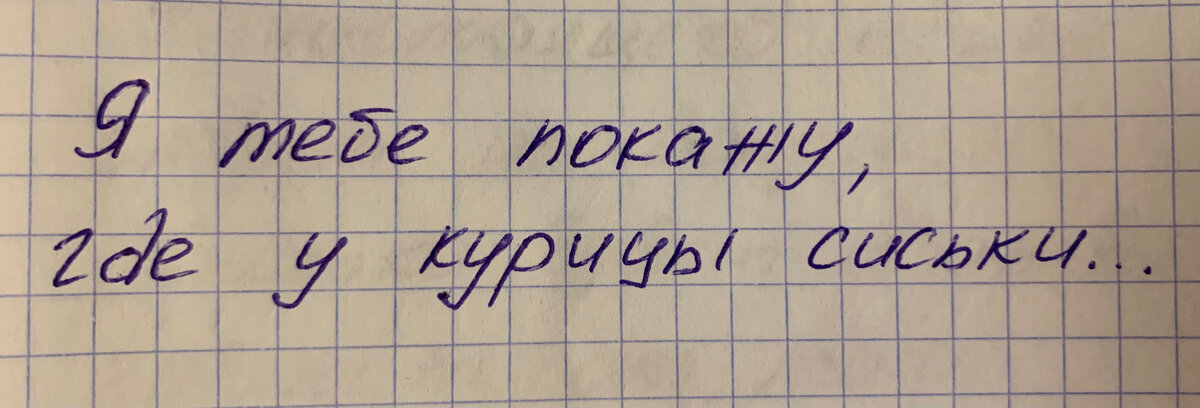 Я тебе покажу,
где у курицы сиськи...